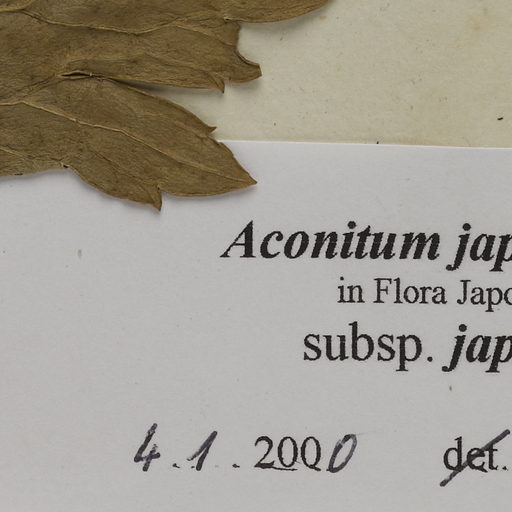 Aconitum jap
in Flora Japo
subsp. jap
4.1.2000 det.